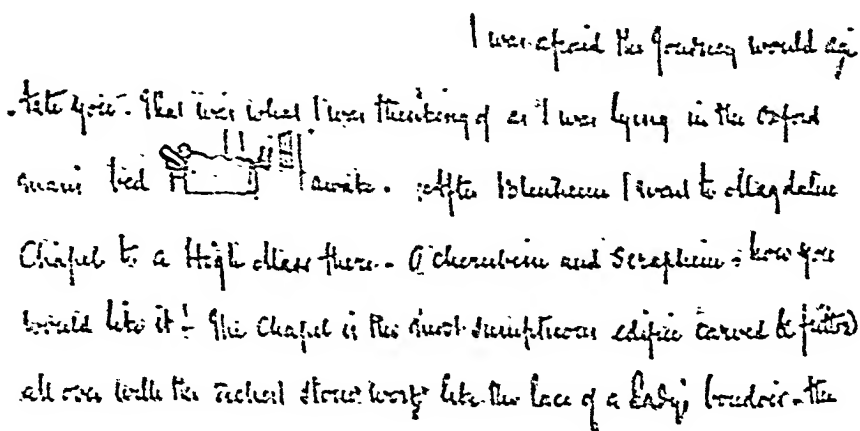 I was afraid the Journey would agi
tate you. That was what I was thinking of as I was lying in the Oxford
man's bed awake. After Blenheim I went to Magdalene
Chapel to a High Mass there. O cherubim and Seraphim how you
would like it! The Chapel is the most sumptuous edifice carved & fretted
all over with the richest stone work like the lace of a Lady's boudoir. the